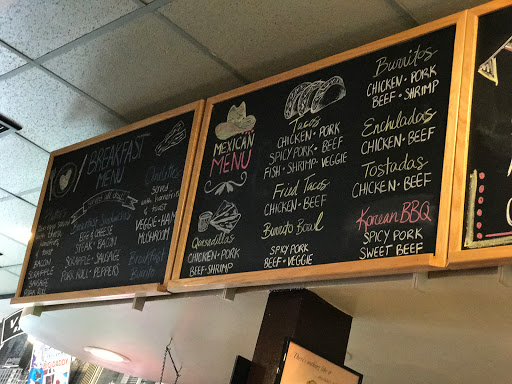 BREAKFAST
MENU
served all day!
Omelettes
Served
VEGGIE • HAM
MUSHROOM
Breakfast
Burrito
Breakfast Sandwiches
EGG & CHEESE
STEAK • BACON
SCRAPPLE • SAUSAGE
PORK ROLL • PEPPERS
BACON
SCRAPPLE
SAUSAGE
MEXICAN
MENU
Quesadillas
CHICKEN • PORK
BEEF • SHRIMP
Tacos
CHICKEN • PORK
SPICY PORK • BEEF
FISH • SHRIMP • VEGGIE
Fried Tacos
CHICKEN • BEEF
Burrito Bowl
SPICY PORK
BEEF • VEGGIE
Burritos
CHICKEN • PORK
BEEF • SHRIMP
Enchiladas
CHICKEN • BEEF
Tostadas
CHICKEN • BEEF
Korean BBQ
SPICY PORK
SWEET BEEF